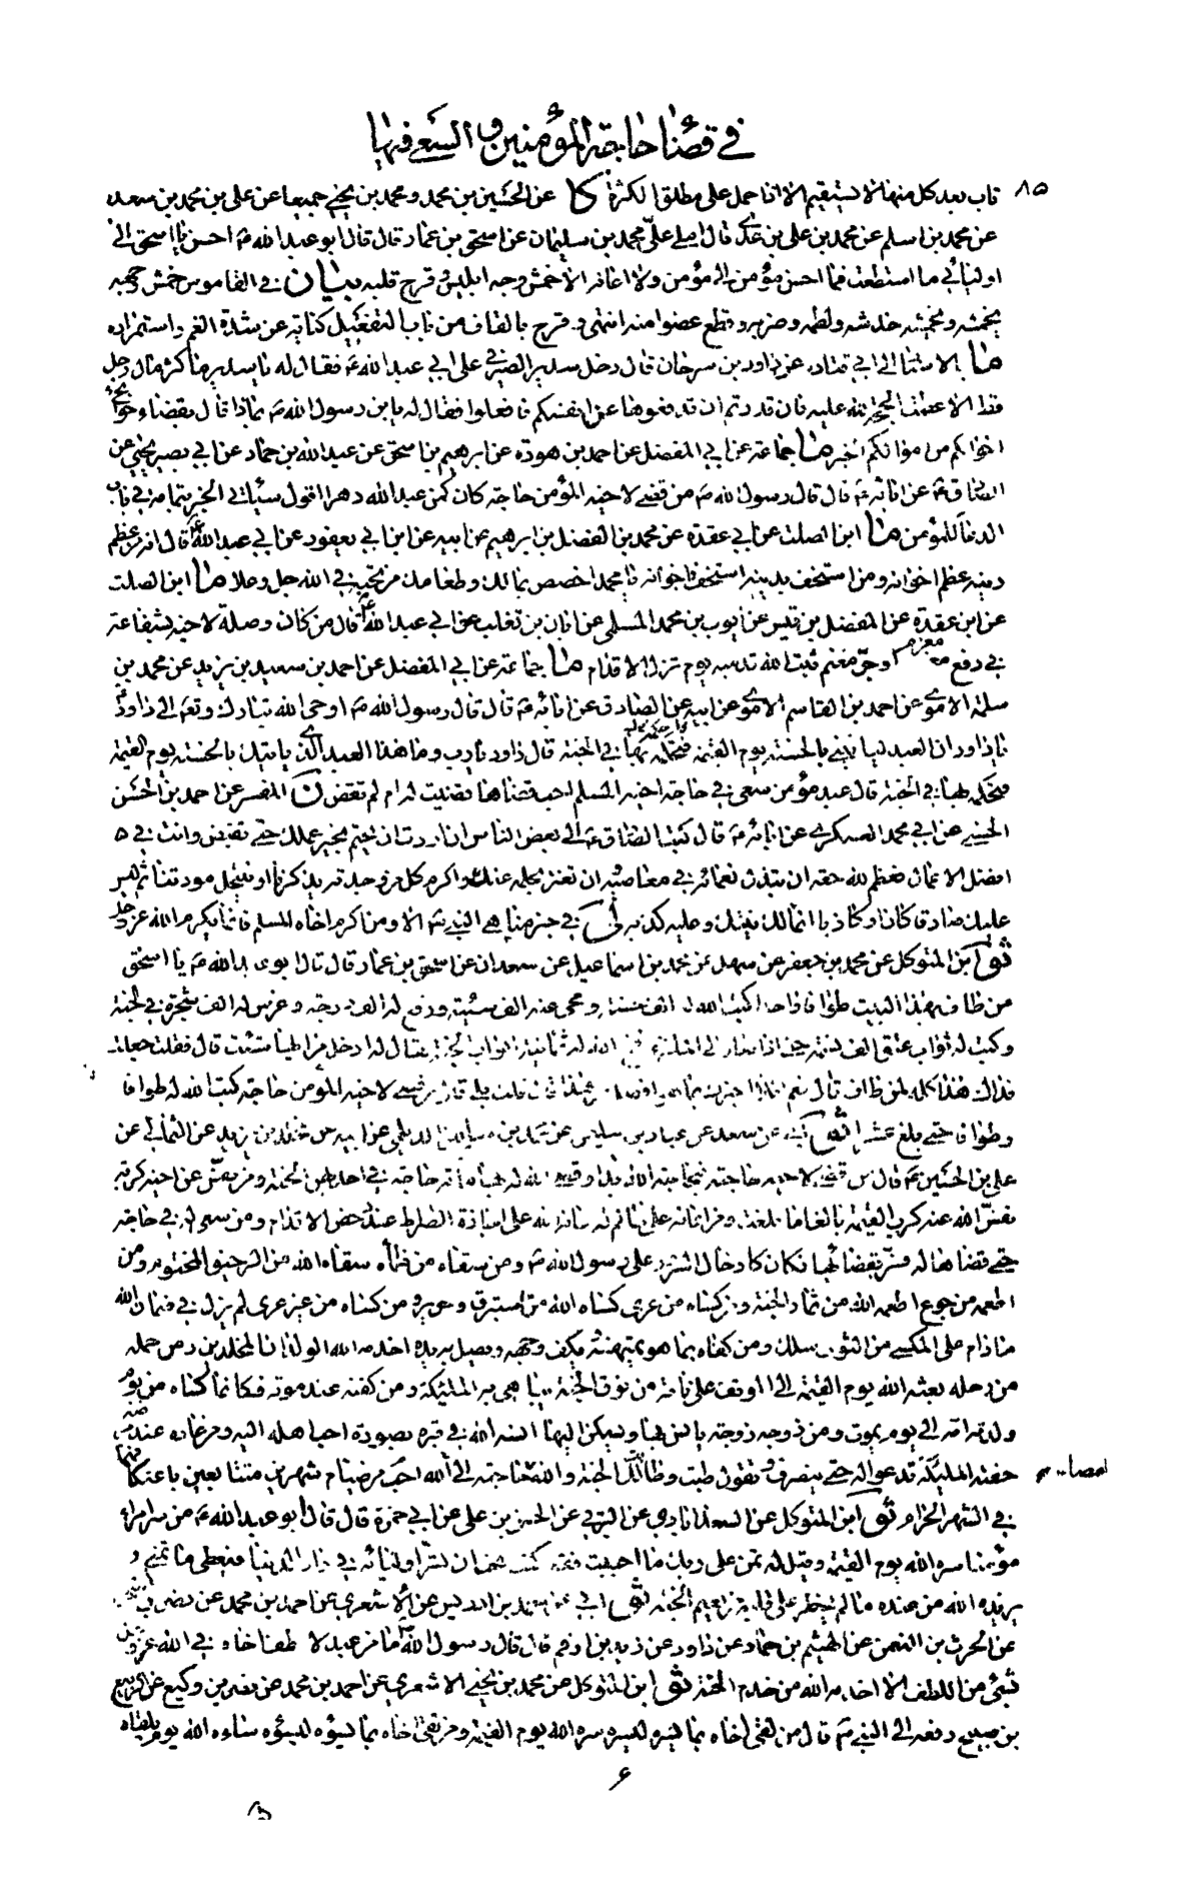 في قضاء حاجة المؤمنين والسعي فيها
٨٥
قاب بعد كل منها لا يستقيم الا اذا حمل على مطلق الكثرة كا عن الحسين بن محمد و محمد بن يحيى جميعا عن علي بن محمد بن سعد
عن محمد بن اسلم عن محمد بن علي بن عدي قال املى علي محمد بن سليمان عن اسحق بن عمار قال قال ابو عبد الله ع احسن يا اسحق الى
اوليائي ما استطعت فما احسن مؤمن الى مؤمن ولا اعانه الا خمش وجه ابليس و قرح قلبه بيان في القاموس خمش وجهه
يخمشه و يخمشه خدشه و لطمه و ضربه و قطع عضوا منه انتهى و قرح بالقاف من باب التفعيل كناية عن شدة الغم و استمراره
ما بالاسناد الى ابي قتادة عن داود بن سرحان قال دخل سدير الصيرفي على ابي عبد الله ع فقال له يا سدير ما كثر مال رجل
قط الا عظمت الحجة لله عليه فان قدرتم ان تدفعوها عن انفسكم فافعلوا فقال له يا بن رسول الله ص بماذا قال بقضاء حوائج
اخوانكم من اموالكم الخبر ما جماعة عن ابي المفضل عن احمد بن هوذة عن ابرهيم بن اسحق عن عبد الله بن حماد عن ابي بصير يحيى عن
الصادق ع عن ابائه ع قال قال رسول الله ص من قضى لاخيه المؤمن حاجة كان كمن عبد الله دهرا اقول سيأتي الخبر بتمامه في باب
الدعاء للمؤمن ما ابن الصلت عن ابي عقدة عن محمد بن الفضل بن ابرهيم عن ابيه عن ابن ابي يعفور عن ابي عبد الله ع قال انه من عظم
دينه عظم اخوانه و من استخف بدينه استخف باخوانه يا محمد اخصص بمالك و طعامك من تحبه في الله جل و علا ما ابن الصلت
عن ابن عقدة عن المفضل بن قيس عن ايوب بن محمد المسلي عن ابان بن تغلب عن ابي عبد الله ع قال من كان وصلة لاخيه بشفاعة
في دفع مغرم او جر مغنم ثبت الله قدميه يوم تزل الاقدام ما جماعة عن ابي المفضل عن احمد بن سعيد بن يزيد عن محمد بن
سلمة الاموي عن احمد بن القاسم الاموي عن ابيه عن الصادق عن ابائه ع قال قال رسول الله ص اوحى الله تبارك و تعالى الى داود
يا داود ان العبد ليأتيني بالحسنة يوم القيمة فاحكمه بها في الجنة قال داود يا رب و ما هذا العبد الذي يأتيك بالحسنة يوم القيمة
فتحكمه بها في الجنة قال عبد مؤمن سعى في حاجة اخيه المسلم احب قضاها قضيت له ام لم تقض ن المفسر عن احمد بن الحسن
الحسيني عن ابي محمد العسكري عن ابائه ع قال كتب الصادق ع الى بعض الناس ان اردت ان يختم بخير عملك حتى تقبض وانت في
افضل الاعمال فعظم لله حقه ان تبذل نعمائه في معاصيه و ان تغتر بحلمه عنك و اكرم كل من وجدته يذكرنا او ينتحل مودتنا ثم ليس
عليك صادقا كان او كاذبا انما لك نيتك و عليه كذبه في خبر مناهي النبي ص الا و من اكرم اخاه المسلم فانما يكرم الله عز و جل
ثو ابن المتوكل عن محمد بن جعفر عن سهل عن محمد بن اسماعيل عن سعدان عن اسحق بن عمار قال قال ابو عبد الله ع يا اسحق
من طاف بهذا البيت طوافا واحدا كتب الله له الف حسنة و محى عنه الف سيئة و رفع له الف درجة و غرس له الف شجرة في الجنة
و كتب له ثواب عتق الف نسمة حتى اذا صار الى الملتزم فتح الله له ثمانية ابواب الجنة يقال له ادخل من ايها شئت قال فقلت جعلت
فداك هذا كله لمن طاف قال نعم افلا اخبرك بما هو افضل من هذا قال قلت بلى قال من قضى لاخيه المؤمن حاجة كتب الله له طوافا
و طوافا حتى بلغ عشرا ثو ابي عن سعد عن عباد بن سليمان عن محمد بن سليمان الديلمي عن ابيه عن مخلد بن يزيد عن الثمالي عن
علي بن الحسين ع قال من قضى لاخيه حاجة فبحاجة الله بدأ و قضى الله له بها مائة حاجة في احديهن الجنة و من نفس عن اخيه كربة
نفس الله عنه كرب القيمة بالغا ما بلغت و من اعانه على ظالم له اعانه الله على اجازة الصراط عند دحض الاقدام و من سعى له في حاجة
حتى قضاها له فسر بقضائها فكان كادخال السرور على رسول الله ص و من سقاه من ظمأ سقاه الله من الرحيق المختوم و من
اطعمه من جوع اطعمه الله من ثمار الجنة و من كساه من عرى كساه الله من استبرق و حرير و من كساه من غير عرى لم يزل في ضمان الله
ما دام على المكسي من الثوب سلك و من كفاه بما هو يمتهنه و يكف وجهه و يصل به يديه اخدمه الله الولدان المخلدين و من حمله
من رحله بعثه الله يوم القيمة الى الموقف على ناقة من نوق الجنة يباهي به الملئكة و من كفنه عند موته فكانما كساه من يوم
ولدته امه الى يوم يموت و من زوجه زوجة يانس بها و يسكن اليها انسه الله في قبره بصورة احب اهله اليه و من عاده عند مرضه
حفته الملئكة تدعو له حتى ينصرف و تقول طبت و طابت لك الجنة و الله لقضاء حاجته الى الله احب من صيام شهرين متتابعين باعتكافهما
في الشهر الحرام ثو ابن المتوكل عن السعدابادي عن البرقي عن الحسن بن علي عن ابي حمزة قال قال ابو عبد الله ع من سر امرء
مؤمنا سره الله يوم القيمة و قيل له تمن على ربك ما احببت فقد كنت تحب ان تسر اوليائه في دار الدنيا فيعطى ما تمنى و
يزيده الله من عنده ما لم يخطر على قلبه من نعيم الجنة ثو ابي عن احمد بن ادريس عن الاشعري عن احمد بن محمد عن نضر بن
عن الحرث بن النعمن عن الهيثم بن حماد عن داود عن زيد بن ارقم قال قال رسول الله ص ما من عبد لاطف اخاه في الله عز و جل
بشئ من اللطف الا اخدمه الله من خدم الجنة ثو ابن المتوكل عن محمد بن يحيى الاشعري عن احمد بن محمد عن نصر بن وكيع عن الربيع
بن صبيح رفعه الى النبي ص قال من لقي اخاه بما يسره ليسره سره الله يوم القيمة و من لقي اخاه بما يسوؤه ليسوؤه ساءه الله يوم يلقاه